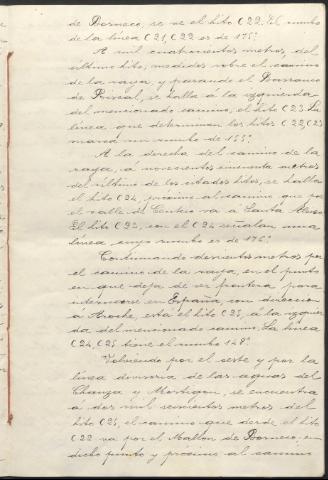 de Borneco, se ve el hito C 22. El rumbo
de la línea C 21, C 22 es de 175º.
A mil cuatrocientos metros, del
último hito, medidos sobre el camino
de la raya, y pasando el Barranco
de Briscal, se halla á la izquierda
del mencionado camino, el hito C 23. La
línea que determinan los hitos C 22, C 23
marca un rumbo de 155º.
A la derecha del camino de la
raya, á novecientos cincuenta metros
del último de los citados hitos, se halla
el hito C 24, próximo al camino que por
el valle de va á Santa
El hito C 23, con el C 24 señalan una
línea, cuyo rumbo es de 176º.
Continuando doscientos metros por
el camino de la raya, en el punto
en que deja de ser frontera para
internarse en España, con dirección
á Aroche, está el hito C 25, á la izquier
da del mencionado camino. La línea
C 24, C 25 tiene el rumbo 148º.
Volviendo por el oeste y por la
línea divisoria de las aguas del
Chanza y Mortigon, se encuentra
á dos mil seiscientos metros del
hito C 25, el camino que desde el hito
C 22 va por el Mallon de Borneco; en
dicho punto y próximo al camino